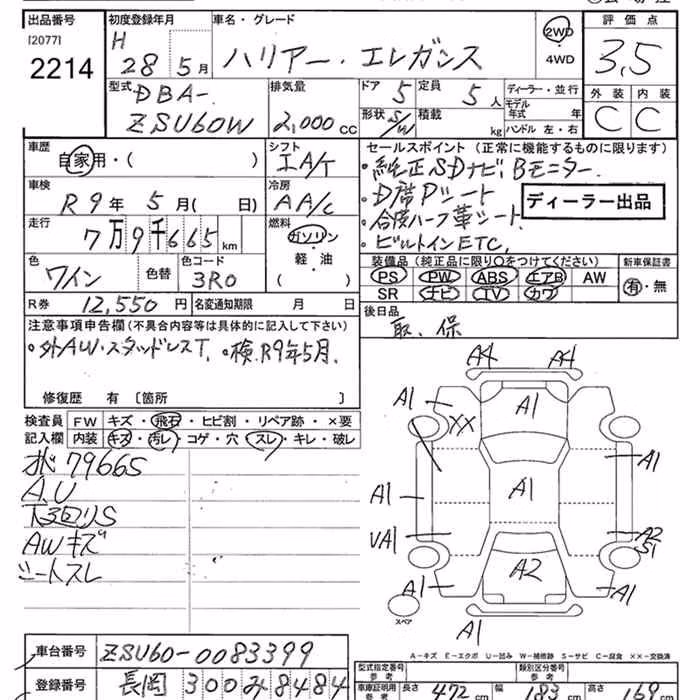 出品番号 初度登録年月 車名・グレード 評価点
[2077] H 28年 5月 ハリアー・エレガンス 2WD 3.5
2214 4WD
型式 DBA- 排気量 ドア 5 定員 5人 ディーラー・並行 外装 内装
ZSU60W 2,000 CC 形状 S/W 積載 kg モデル年式 年 C C
ハンドル 左・右
車歴 シフト セールスポイント (正常に機能するものに限ります)
自家用・( ) IA/T ・純正SDナビ Bモニター.
車検 冷房 ・D席Pシート
R9年 5月 ( 日) AA/C ディーラー出品
走行 燃料 ・合皮ハーフ革シート.
7万9千665km ガソリン ・ビルトインETC.
色 色替 色コード 軽・油 装備品 (純正品に限り○をつけてください) 新車保証書
ワイン 3R0 ( ) PS PW ABS エアB AW 有・無
SR ナビ TV カワ
R券 12,550円 名変通知期限 月 日 後日品
取、保
注意事項申告欄(不具合内容等は具体的に記入して下さい)
・外AW・スタッドレスT. ・検R9年5月.
修復歴 有 〔箇所 〕
検査員 FW キズ・飛石・ヒビ割・リペア跡・×要
記入欄 内装 キズ・汚レ・コゲ・穴・スレ・キレ・破レ
79665
A.U
下回りS
AWキズ
シートスレ
A4 A4
A1 XX A1
A1
A1 A1
VA1 A2
S1
A1 A2 A1
スペア
A1
A-キズ E-エクボ U-凹み W-補修跡 S-サビ C-腐食 ××-交換済
車台番号 ZSU60-0083399
登録番号 長岡 300 み 8484
型式指定番号 参考 類別区分番号 参考
車庫証明用 参考 長さ 472 cm 幅 183 cm 高さ 169 cm